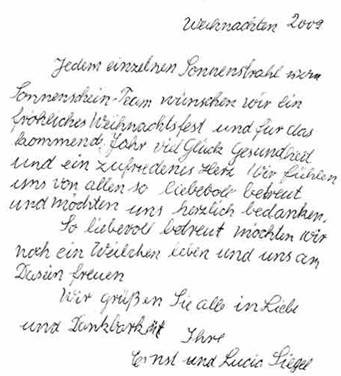 Weihnachten 2009
Jedem einzelnen Sonnenstrahl vom
Sonnenschein-Team wünschen wir ein
fröhliches Weihnachtsfest und für das
kommend. Jahr viel Glück Gesundheit
und ein zufriedenes Herz Wir fühlen
uns von allen so liebevoll betreut
und möchten uns herzlich bedanken.
So liebevoll betreut möchten wir
noch ein Weilchen leben und uns am
Dasein freuen
Wir grüßen Sie alle in Liebe
und Dankbarkeit Ihre
Ernst und Lucia Siegel